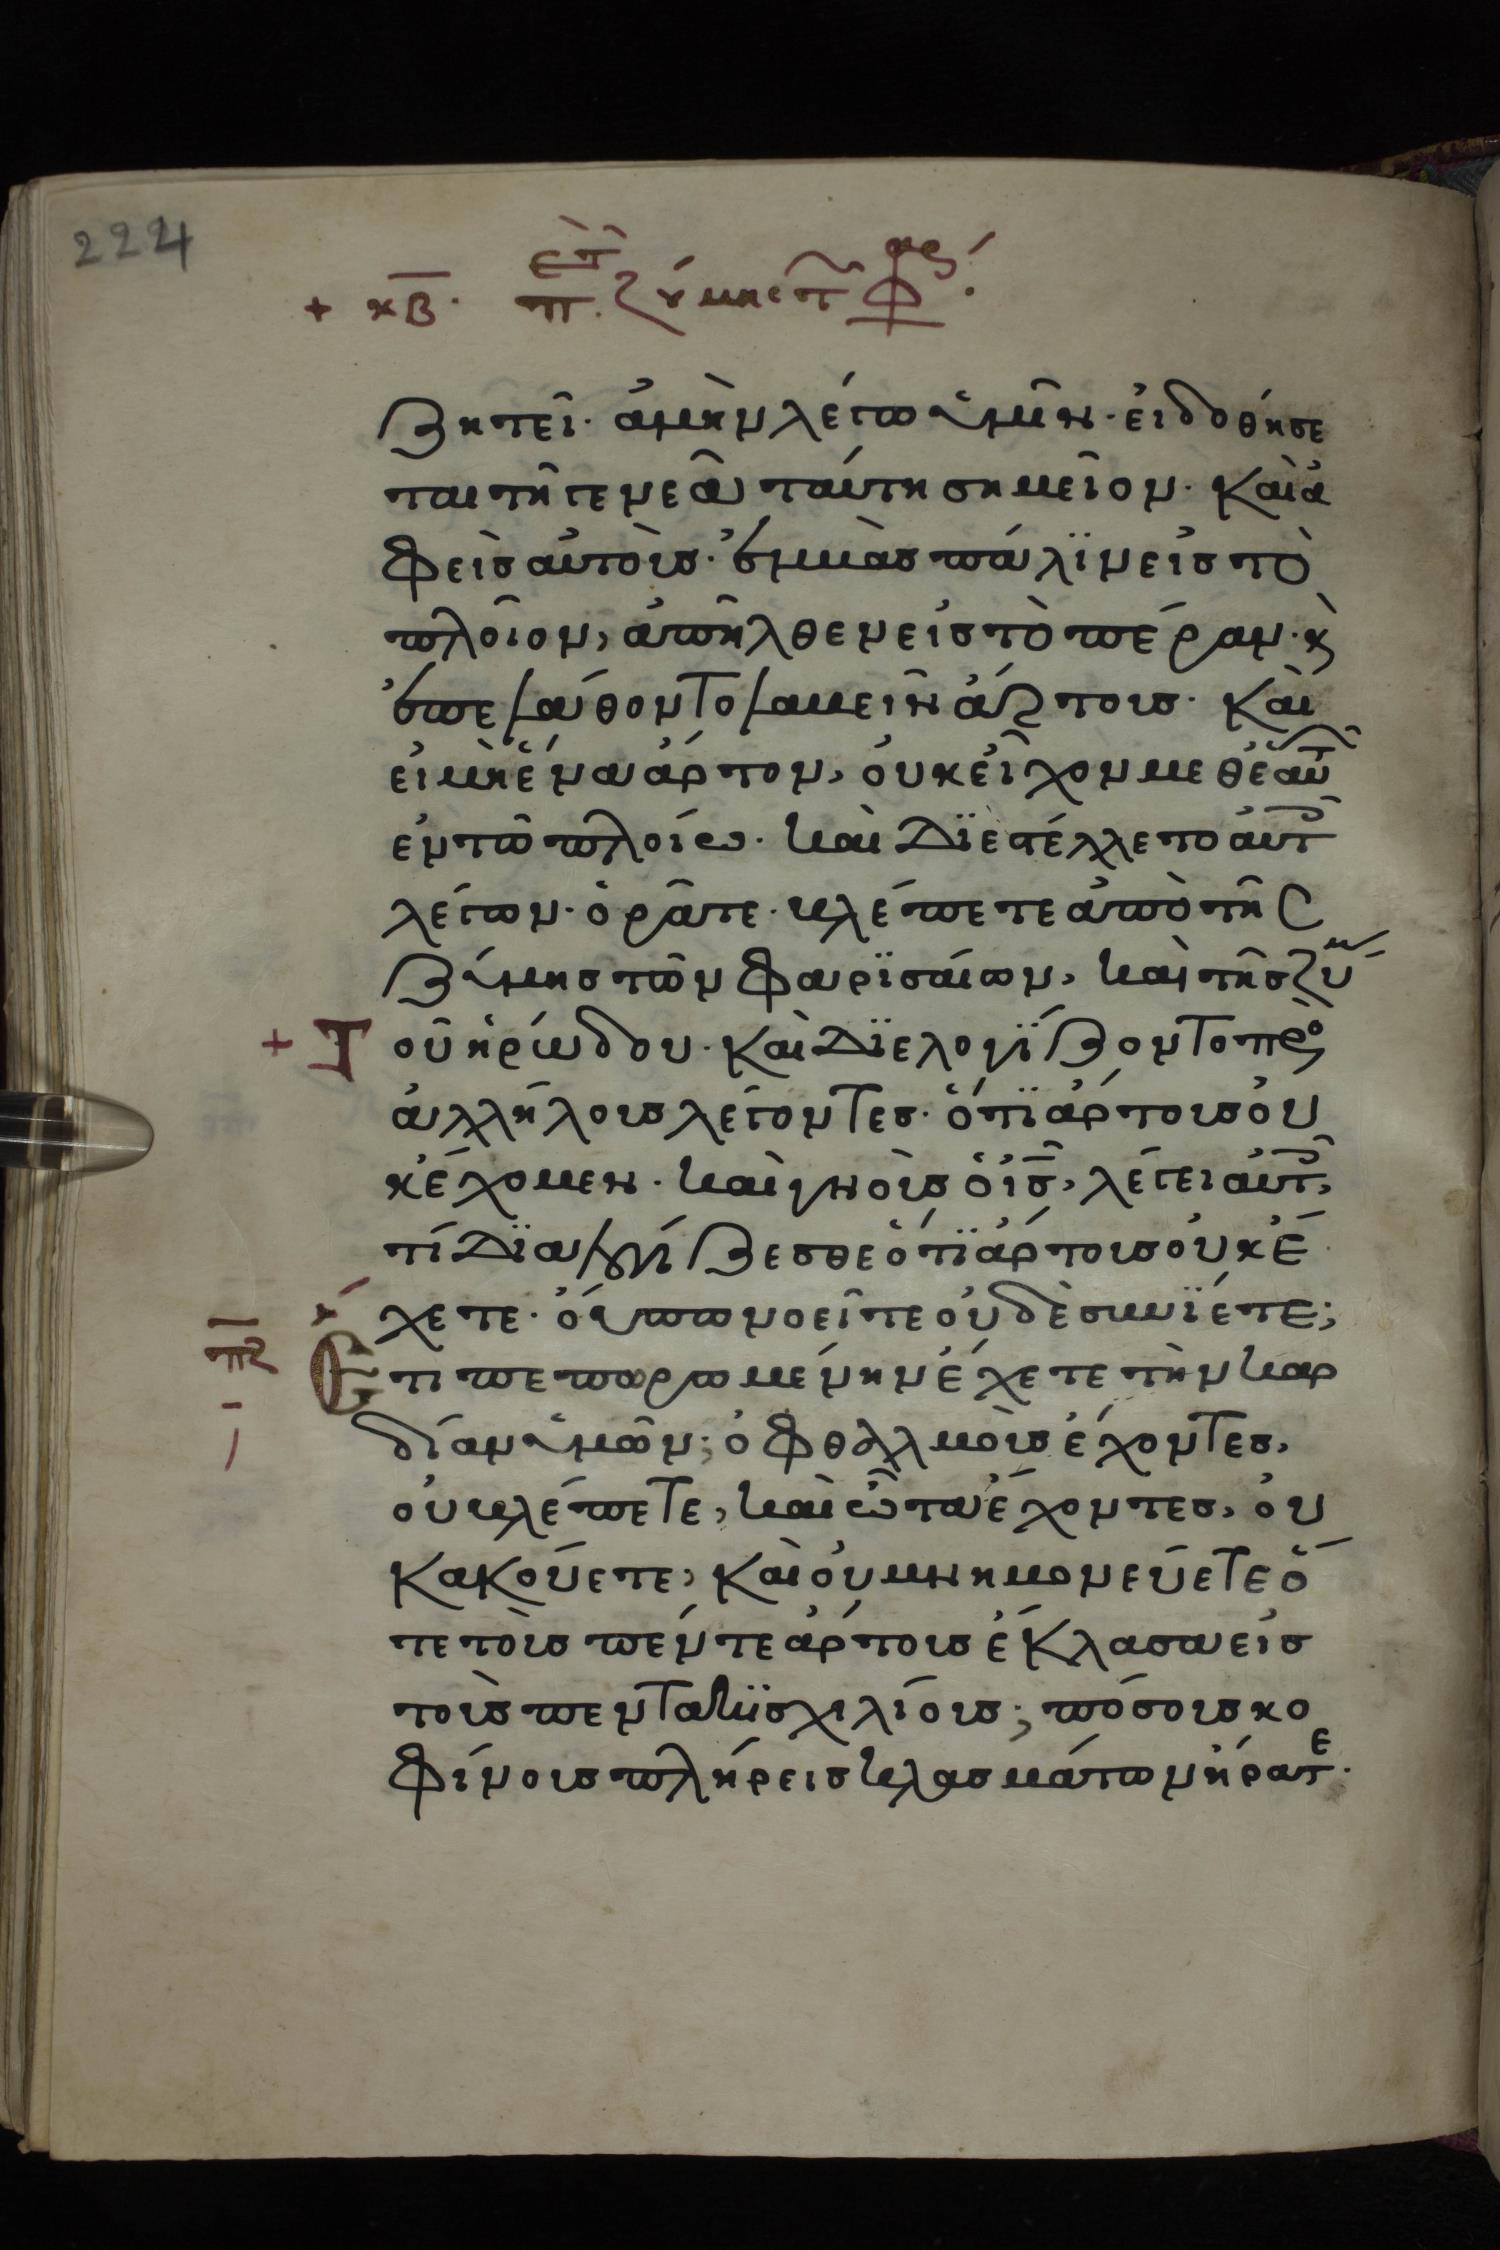 224
+ κβ. π. ζύμης τ φ
ζητεῖ· ἀμὴν λέγω ὑμῖν· εἰ δοθήσε
ται τῆ γενεᾶ ταύτη σημεῖον· καὶ ἀ
φεὶς αὐτοὺς· ἐμβὰς πάλϊν εἰς τὸ
πλοῖον, ἀπῆλθεν εἰς τὸ πέραν· κ̀
ἐπελάθοντο λαβεῖν ἄρτους· καὶ
εἰ μὴ ἕνα ἄρτον, οὐκ εἶχον μεθ ἑαυτ
ἐν τῶ πλοίω· καὶ Δϊεστέλλετο αὐτ
λέγων· ὁρᾶτε· βλέπετε ἀπὸ τῆς
ζύμης τῶν φαρϊσαίων, καὶ τῆς ζύμ
+ Τ οῦ ἡρώδου· καὶ Δϊελογΐζοντο πρὸς
ἀλλήλους λέγοντες· ὅτϊ ἄρτους οὐ
κ ἔχομεν· καὶ γνοὺς ὁ ις, λέγει αὐτ,
τί Δϊαλογίζεσθε ὅτϊ ἄρτους οὐκ ἔ
χετε· οὔπω νοεῖτε οὐδὲ συνϊέτε;
πζ Ἔ τι πεπωρωμένην ἔχετε τὴν καρ
δίαν ὑμῶν; ὀφθαλμοὺς ἔχοντες,
οὐ βλέπετε, καὶ ὦτα ἔχοντες, οὐ
κ ἀκούετε, καὶ οὐ μνημονεύετε ὅ
τε τοὺς πέντε ἄρτους ἔκλασα εἰς
τοὺς πεντακϊσχιλίους; πόσους κο
φίνους πλήρεις κλασμάτων ἤρατε.